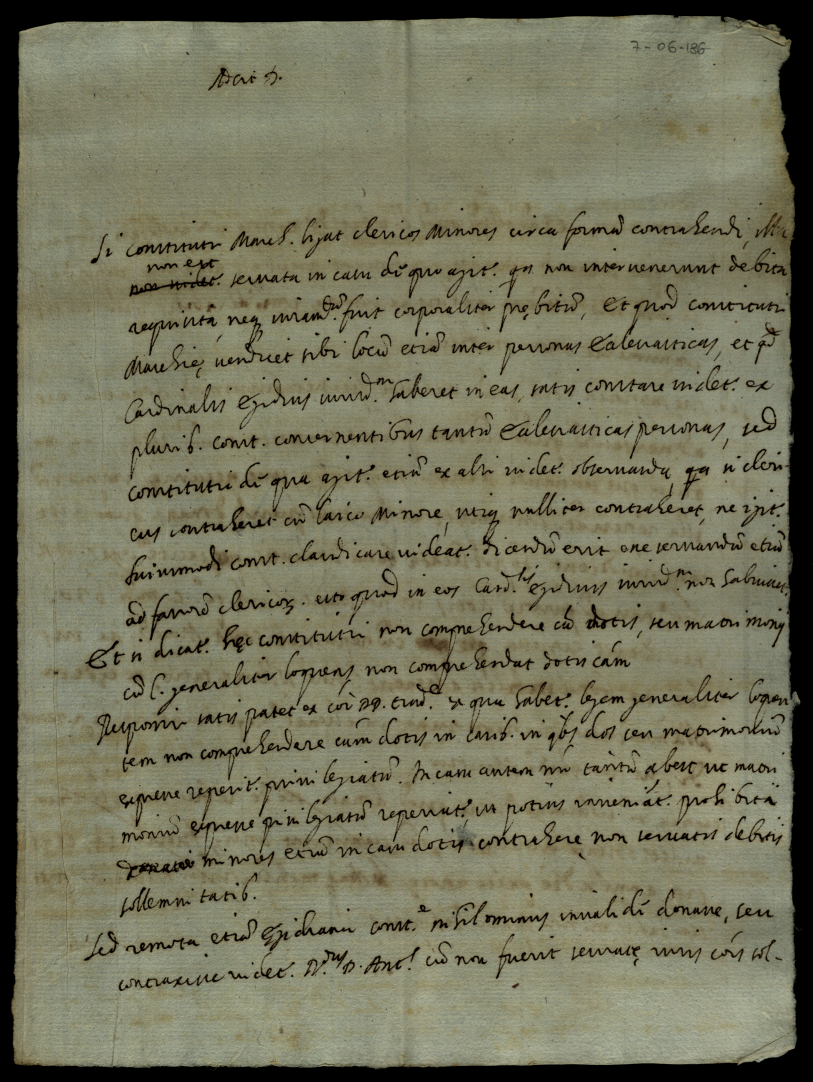 7-06-186
Si constitutio March. ligat clericos Minores circa formã contrahendi,
non est
non videt. servata in casu de quo agit. qa non intervenerunt debita
requisita, neq iuramtũ fuit corporaliter prębitũ, et quod constitutio
Marchię vendicet sibi locũ etiã inter personas Ecclesiasticas, et qd
Cardinalis Egidius iurisdnem haberet in eas, satis constare videt. ex
plurib. const. concernentibus tantũ Ecclesiasticas personas, sed
constitutio de qua agit. etiã ex alio videt. observanda, qa si cleri-
cus contraheret cũ laico Minore, utiq nulliter contraheret, ne igit.
huiusmodi const. claudicare videat. dicendũ erit ee servandũ etiã
ad favorẽ clericoꝝ. esto quod in eos Card.lis Egidius iurisdnem non habuisset.
Et si dicat. hęc constitutio non comprehendere cãm dotis, seu matrimonij
cũ l. generaliter loquens non comprehendat dotis cãm
Responsio satis patet ex cõi DD. trad.e ex qua habet. legem generaliter loquen
tem non comprehendere cãm dotis in casib. in qbs dos seu matrimoniũ
expresse reperit. privilegiatũ. In casu autem nro tantũ abest ut matri
moniũ expresse privilegiatũ reperiat. ut potius inveniat. prohibita
minores etiã in casu dotis contrahere non servatis debitis
sollemnitatib.
Sed remota etiã Egidiana const.e nihilominus invalide donasse, seu
contraxisse videt. D.nus D. Ant.s cũ non fuerit servatę iuris cõis sol-